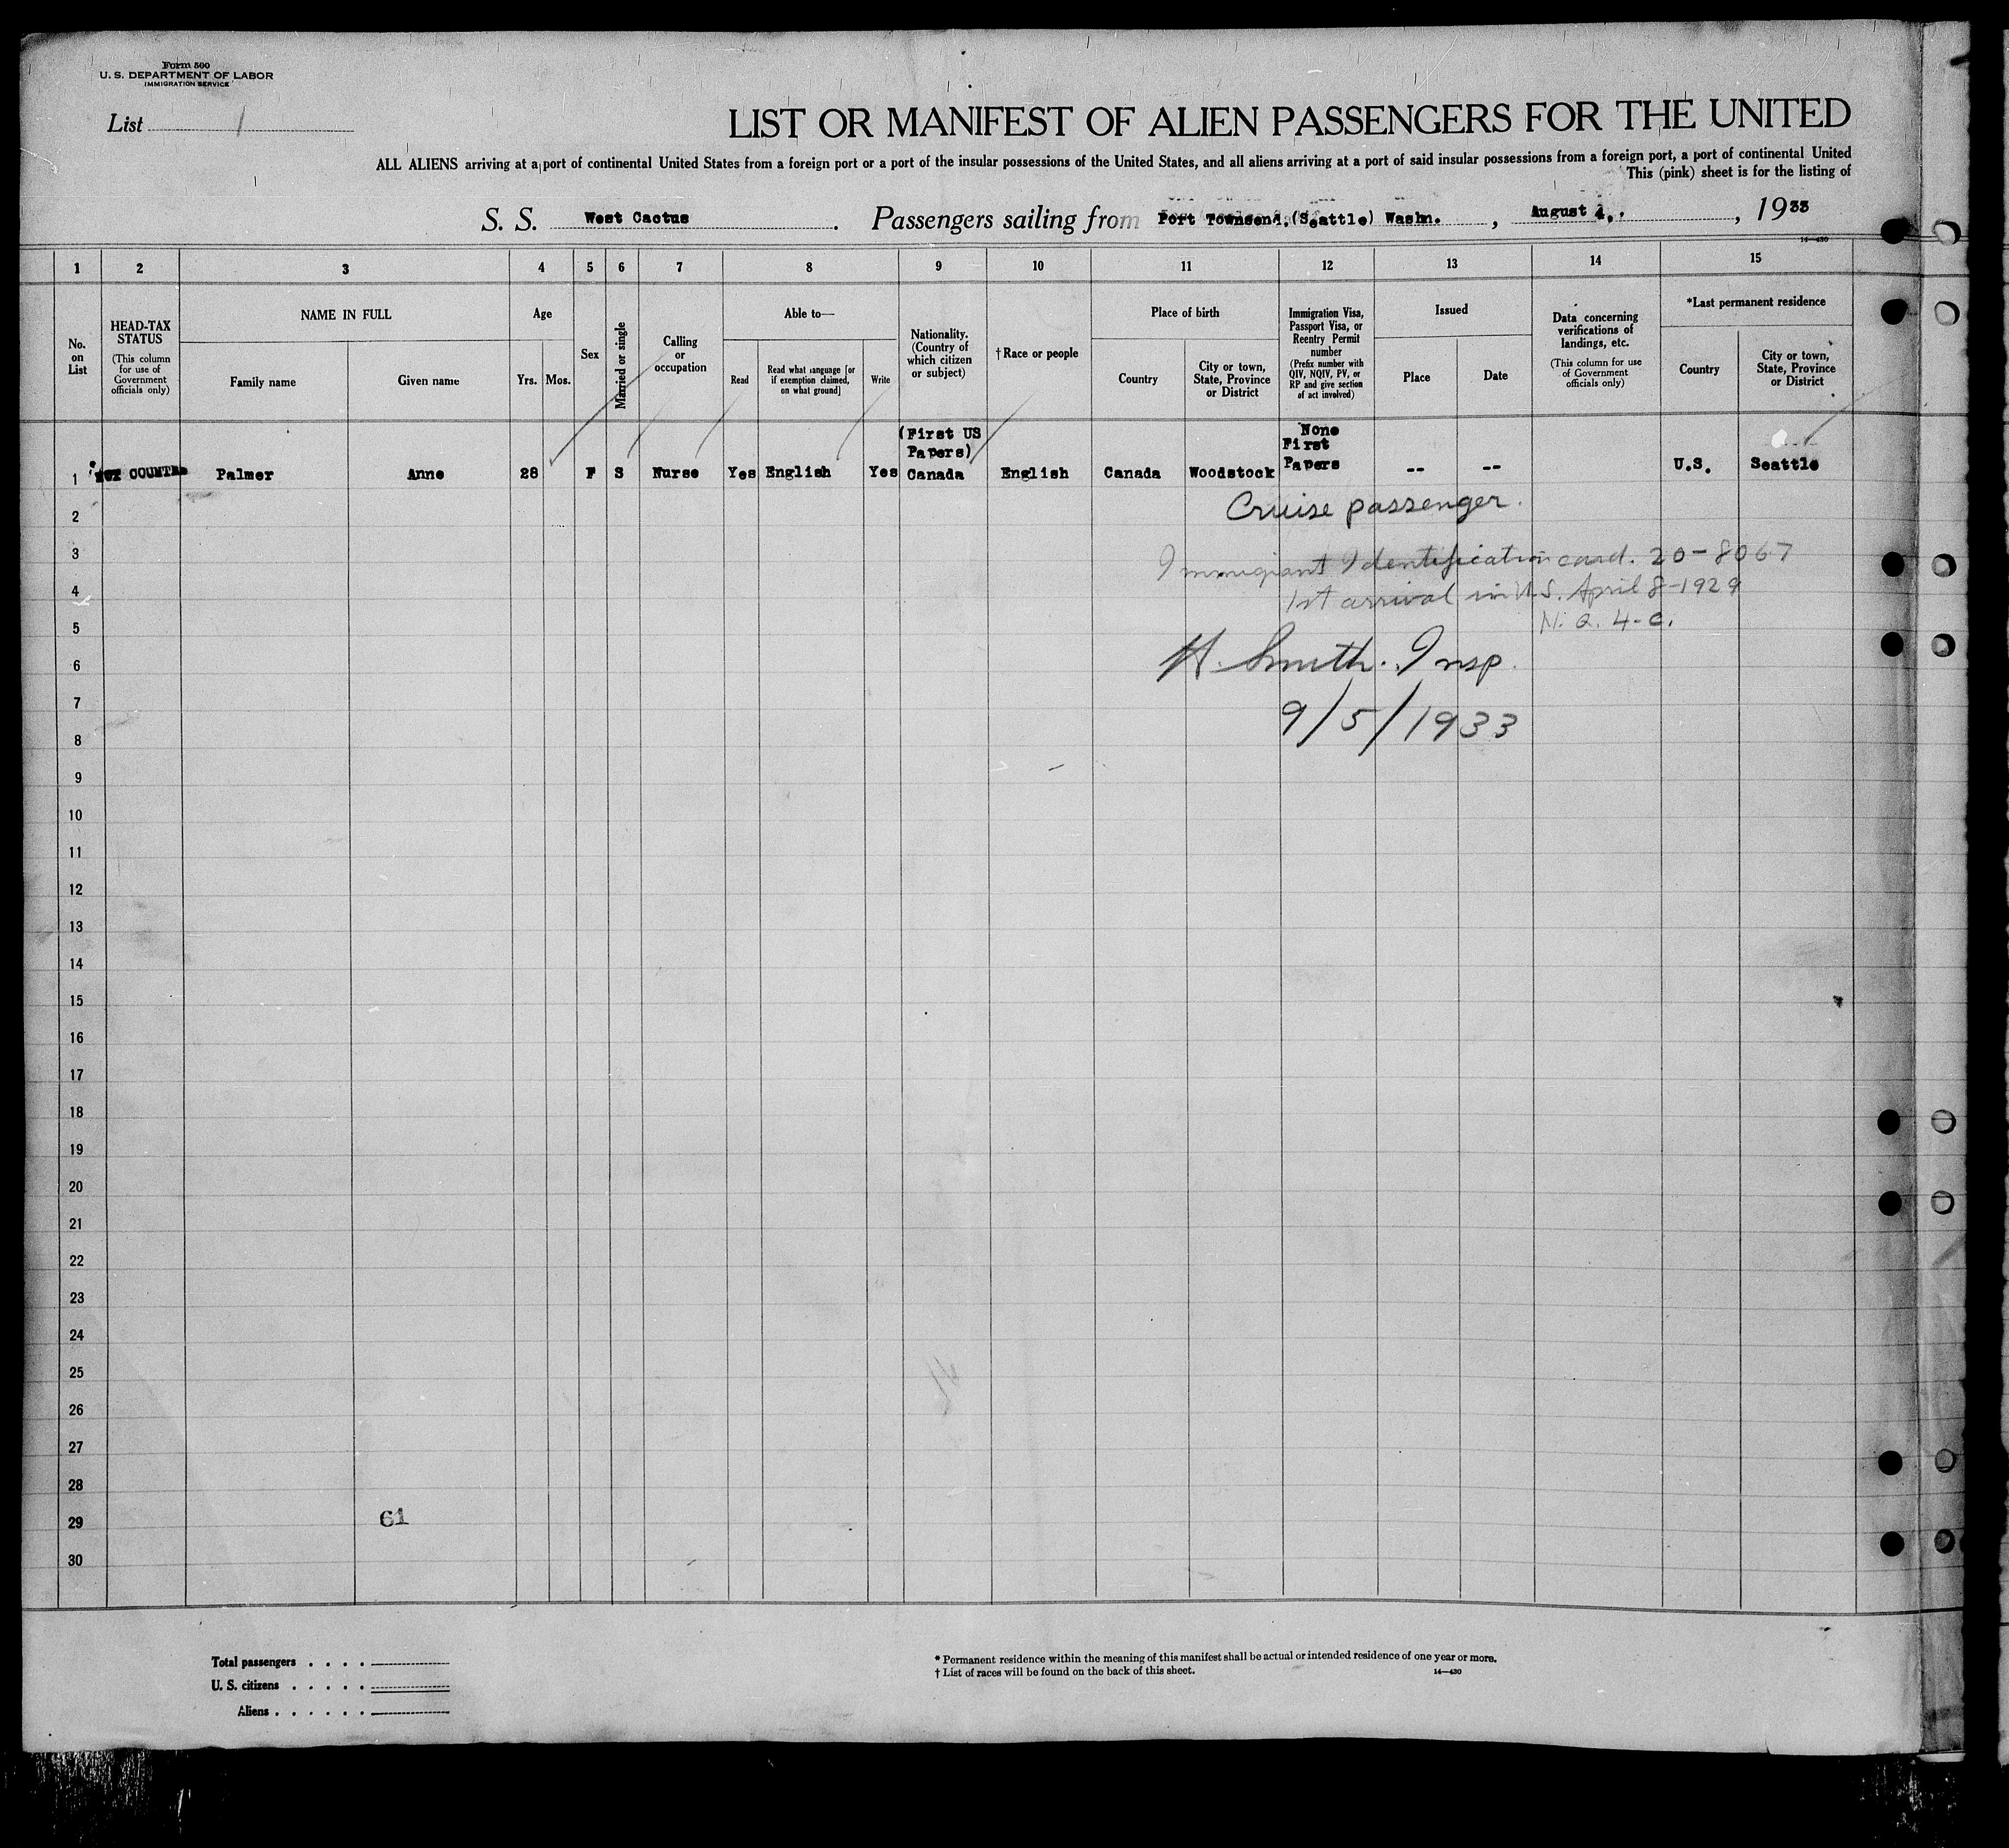 Form 500
U. S. DEPARTMENT OF LABOR
IMMIGRATION SERVICE
List 1
LIST OR MANIFEST OF ALIEN PASSENGERS FOR THE UNITED
ALL ALIENS arriving at a port of continental United States from a foreign port or a port of the insular possessions of the United States, and all aliens arriving at a port of said insular possessions from a foreign port, a port of continental United
This (pink) sheet is for the listing of
S. S. West Cactus. Passengers sailing from Port Townsend.(Seattle) Washn., August 4,., 1933
14—430
1 2 3 4 5 6 7 8 9 10 11 12 13 14 15
No. on List
HEAD-TAX STATUS
(This column for use of Government officials only)
NAME IN FULL
Family name
Given name
Age
Yrs. Mos.
Sex
Married or single
Calling or occupation
Able to—
Read
Read what language [or if exemption claimed, on what ground]
Write
Nationality. (Country of which citizen or subject)
†Race or people
Place of birth
Country
City or town, State, Province or District
Immigration Visa, Passport Visa, or Reentry Permit number
(Prefix number with QIV, NQIV, PV, or RP and give section of act involved)
Issued
Place
Date
Data concerning verifications of landings, etc.
(This column for use of Government officials only)
*Last permanent residence
Country
City or town, State, Province or District
(First US Papers)
None First Papers
1 Palmer Anne 28 F S Nurse Yes English Yes Canada English Canada Woodstock -- -- U.S. Seattle
2 Cruise passenger.
3 Immigrant Identification card. 20-8067
4 1st arrival in U.S. April 8-1929
5 N. Q. 4-c.
6 H. Smith. Insp.
7 9/5/1933
8
9
10
11
12
13
14
15
16
17
18
19
20
21
22
23
24
25
26
27
28
29 61
30
Total passengers . . . .
U. S. citizens . . . . .
Aliens . . . . . .
* Permanent residence within the meaning of this manifest shall be actual or intended residence of one year or more.
† List of races will be found on the back of this sheet.
14—430